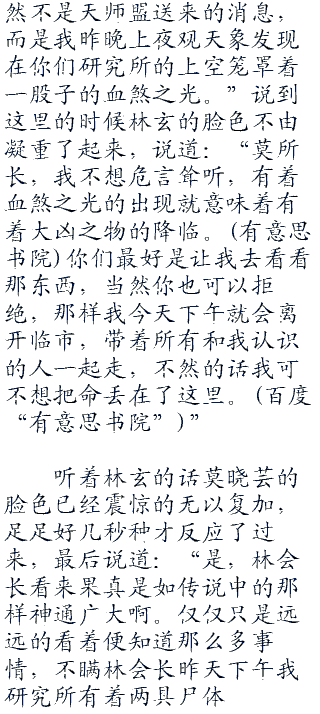 然不是天师盟送来的消息，
而是我昨晚上夜观天象发现
在你们研究所的上空笼罩着
一股子的血煞之光。”说到
这里的时候林玄的脸色不由
凝重了起来，说道：“莫所
长，我不想危言耸听，有着
血煞之光的出现就意味着有
着大凶之物的降临。(有意思
书院)你们最好是让我去看看
那东西，当然你也可以拒
绝，那样我今天下午就会离
开临市，带着所有和我认识
的人一起走，不然的话我可
不想把命丢在了这里。(百度
“有意思书院”)”
听着林玄的话莫晓芸的
脸色已经震惊的无以复加，
足足好几秒种才反应了过
来，最后说道：“是，林会
长看来果真是如传说中的那
样神通广大啊。仅仅只是远
远的看着便知道那么多事
情，不瞒林会长昨天下午我
研究所有着两具尸体